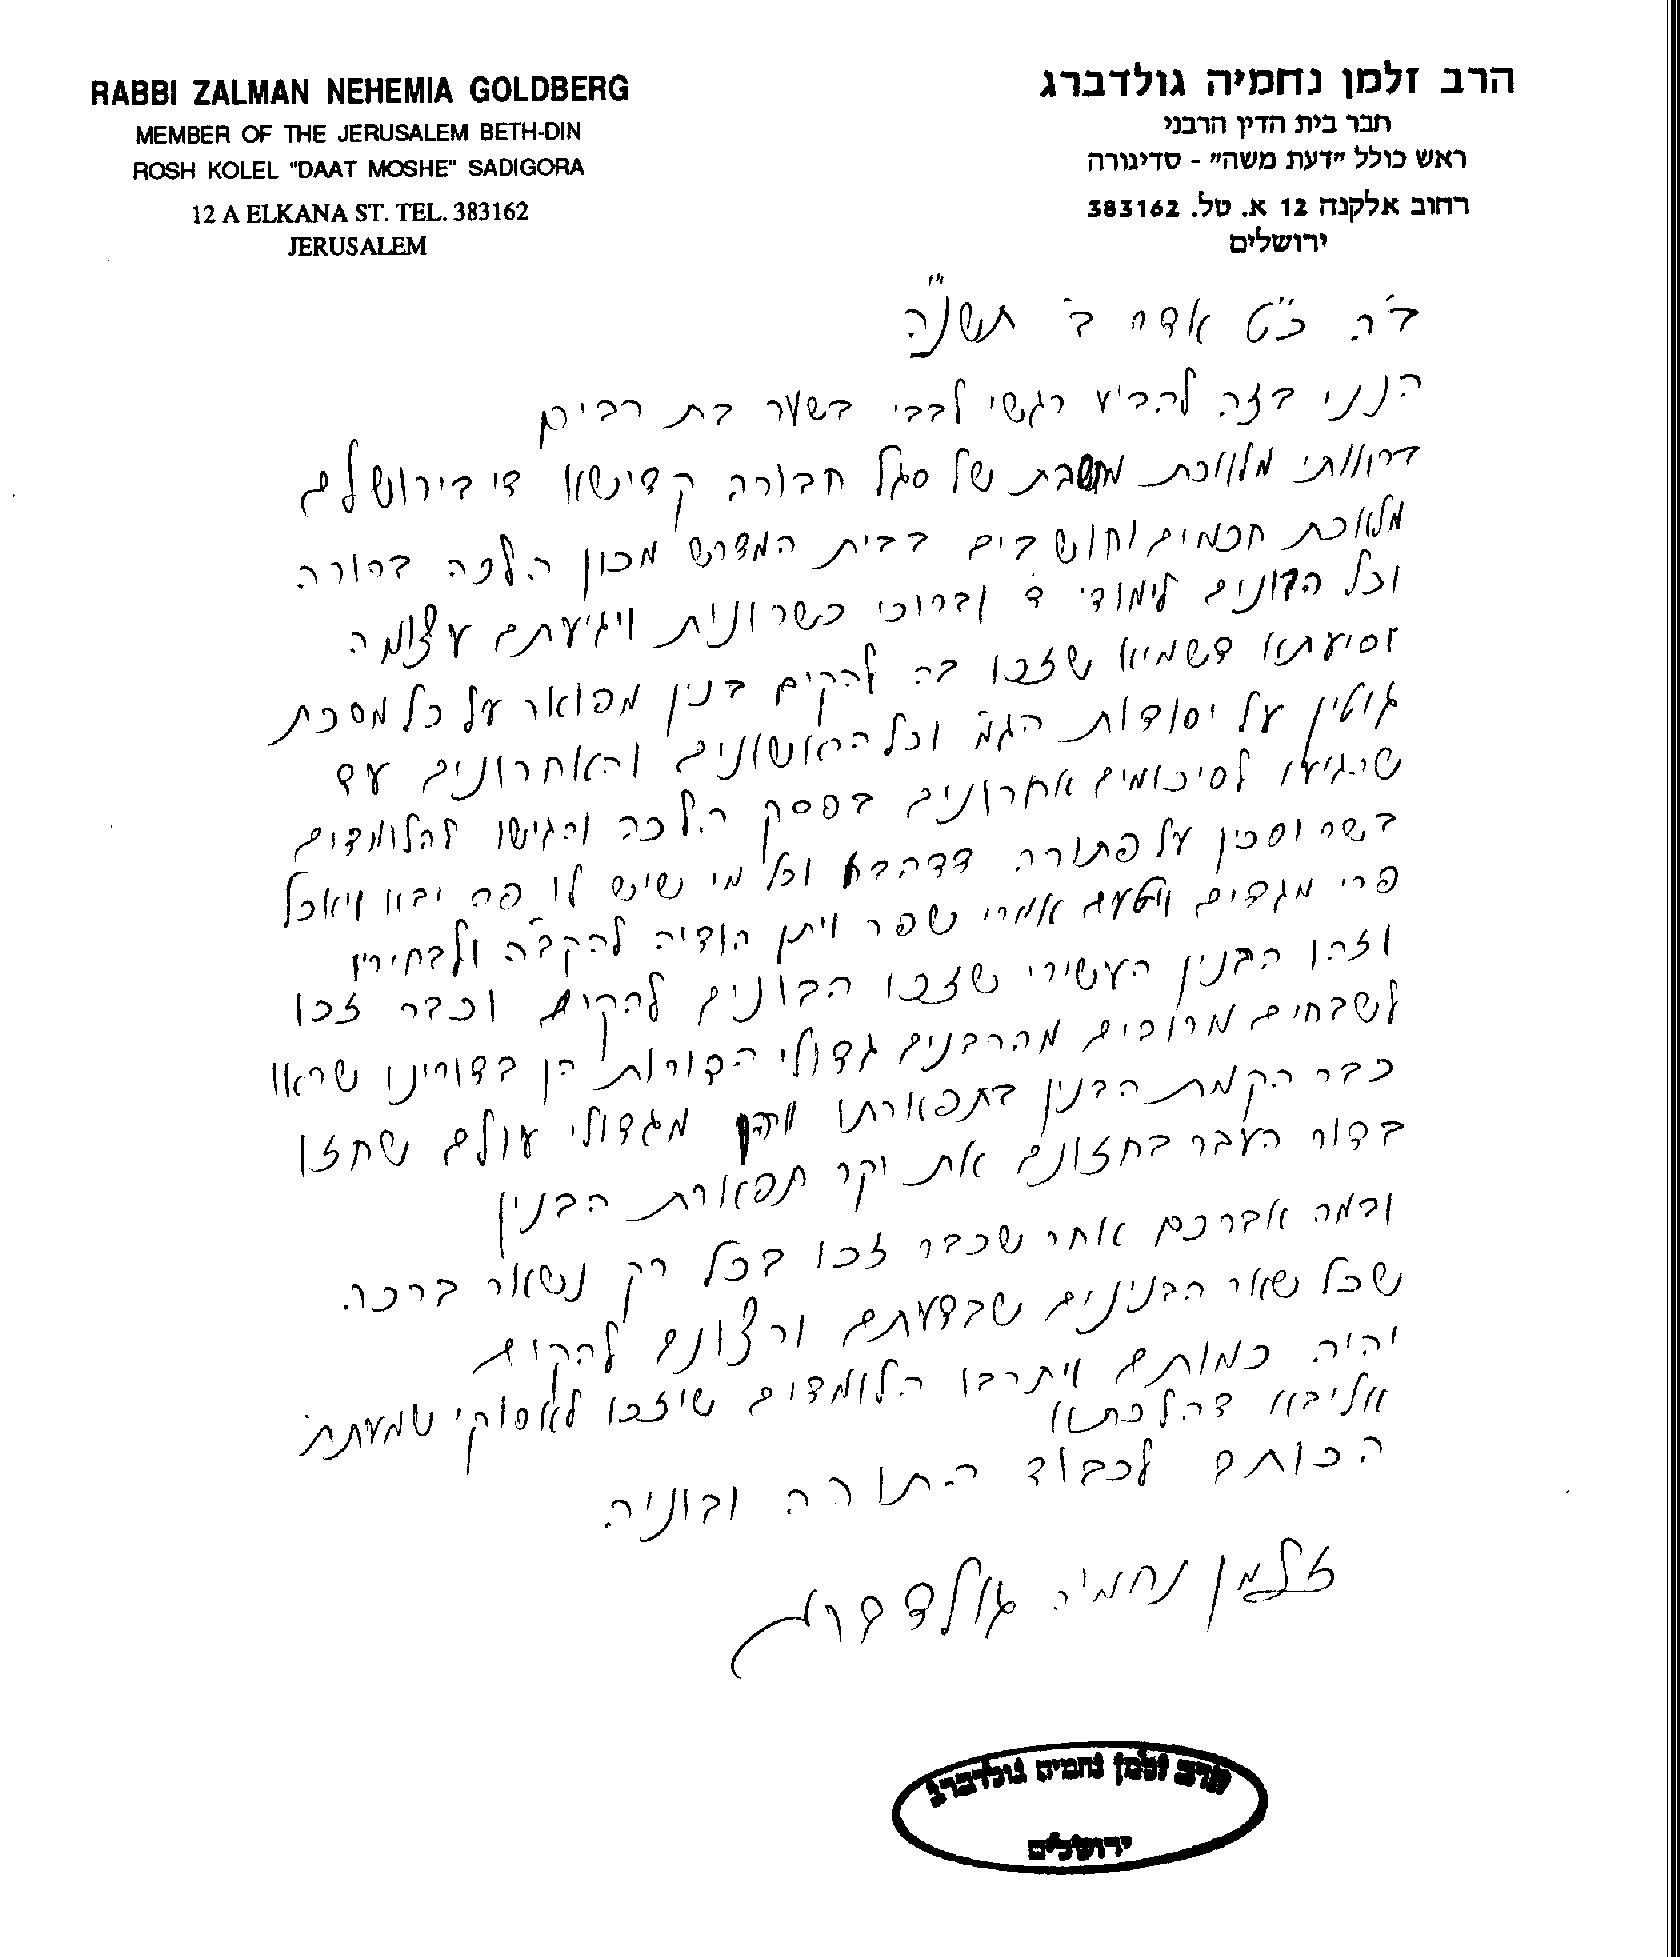 RABBI ZALMAN NEHEMIA GOLDBERG
MEMBER OF THE JERUSALEM BETH-DIN
ROSH KOLEL "DAAT MOSHE" SADIGORA
12 A ELKANA ST. TEL. 383162
JERUSALEM
הרב זלמן נחמיה גולדברג
חבר בית הדין הרבני
ראש כולל "דעת משה" - סדיגורה
רחוב אלקנה 12 א. טל. 383162
ירושלים
ב"ה. כ"ט אדר ב' תשנ"ה
הנני בזה להביע רגשי לבבי בשער בת רבים
מלאכת מחשבת של סגל חבורה קדישא די בירושלם
מלאכת חכמים וחושבים בבית המדרש מכון הלכה ברורה
וכל הבונים לימודי ד' וברוכי כשרונות ויגיעתם עצומה
וסיעתא דשמיא שזכו בה להקים בנין מפואר על כל מסכת
גיטין על יסודות הגמ' וכל הראשונים והאחרונים עד
שהגיעו לסיכומים אחרונים בפסק הלכה והגישו להלומדים
בשר וסכין על פתורה דדהבא וכל מי שיש לו פה יבא ויאכל
פרי מגדים ויטעם אמרי שפר ויתן הודיה להקב"ה ולבחיריו
וזהו הבנין העשירי שזכו הבונים להקים וכבר זכו
לשבחים מרובים מהרבנים גדולי הדורות הן בדורינו שראו
כבר הקמת הבנין בתפארתו והן מגדולי עולם שחזו
בדור העבר בחזונם את יקר תפארת הבנין
ובמה אברכם אחר שכבר זכו בכל רק נשאר ברכה.
שכל שאר הבנינים שבדעתם ורצונם להקים
יהיה כמותם ויתרבו הלומדים שיזכו לאסוקי שמעתת'
אליבא דהלכתא
הכותב לכבוד התורה ובוניה.
זלמן נחמיה גולדברג
הרב זלמן נחמיה גולדברג
ירושלים